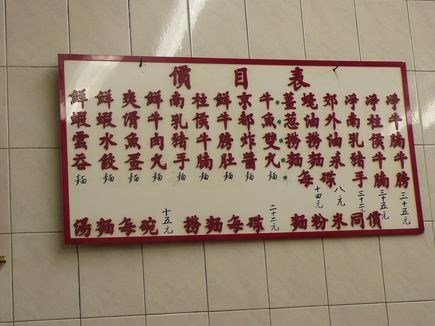 價目表
鮮蝦雲吞麵
鮮蝦水餃麵
爽滑魚蛋麵
鮮牛肉丸麵
南乳豬手麵
柱侯牛腩麵
鮮牛膀肚麵
京都炸醬麵
牛魚雙丸麵
薑葱撈麵
蠔油撈麵每十四元
郊外油菜碟八元
淨南乳豬手三十二元
淨柱侯牛腩三十五元
淨牛腩牛膀三十五元
湯麵每碗 十五元 撈麵每碟 二十二元 麵粉米同價